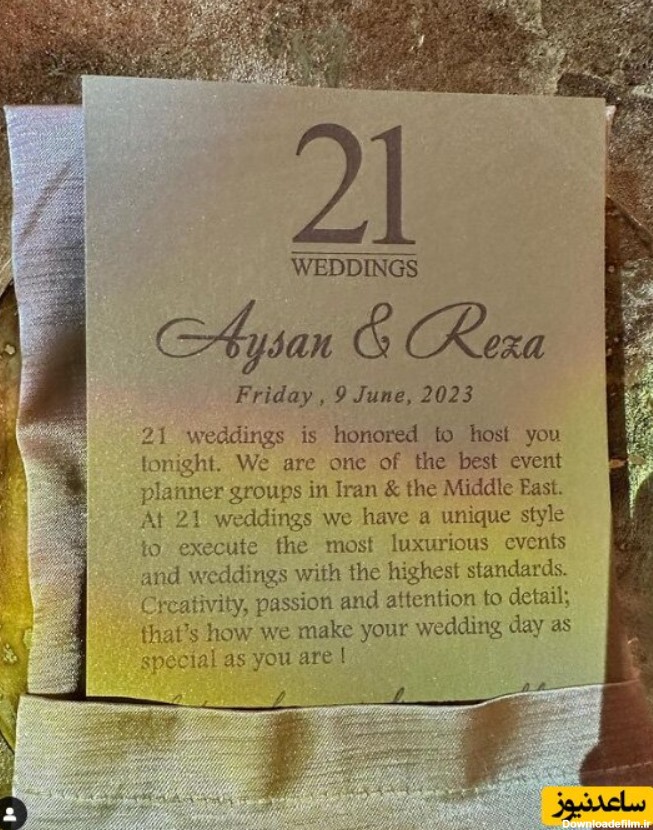 21
WEDDINGS
Aysan & Reza
Friday , 9 June, 2023
21 weddings is honored to host you
tonight. We are one of the best event
planner groups in Iran & the Middle East.
At 21 weddings we have a unique style
to execute the most luxurious events
and weddings with the highest standards.
Creativity, passion and attention to detail;
that's how we make your wedding day as
special as you are !
ساعدنیوز
Downloadefilm.ir